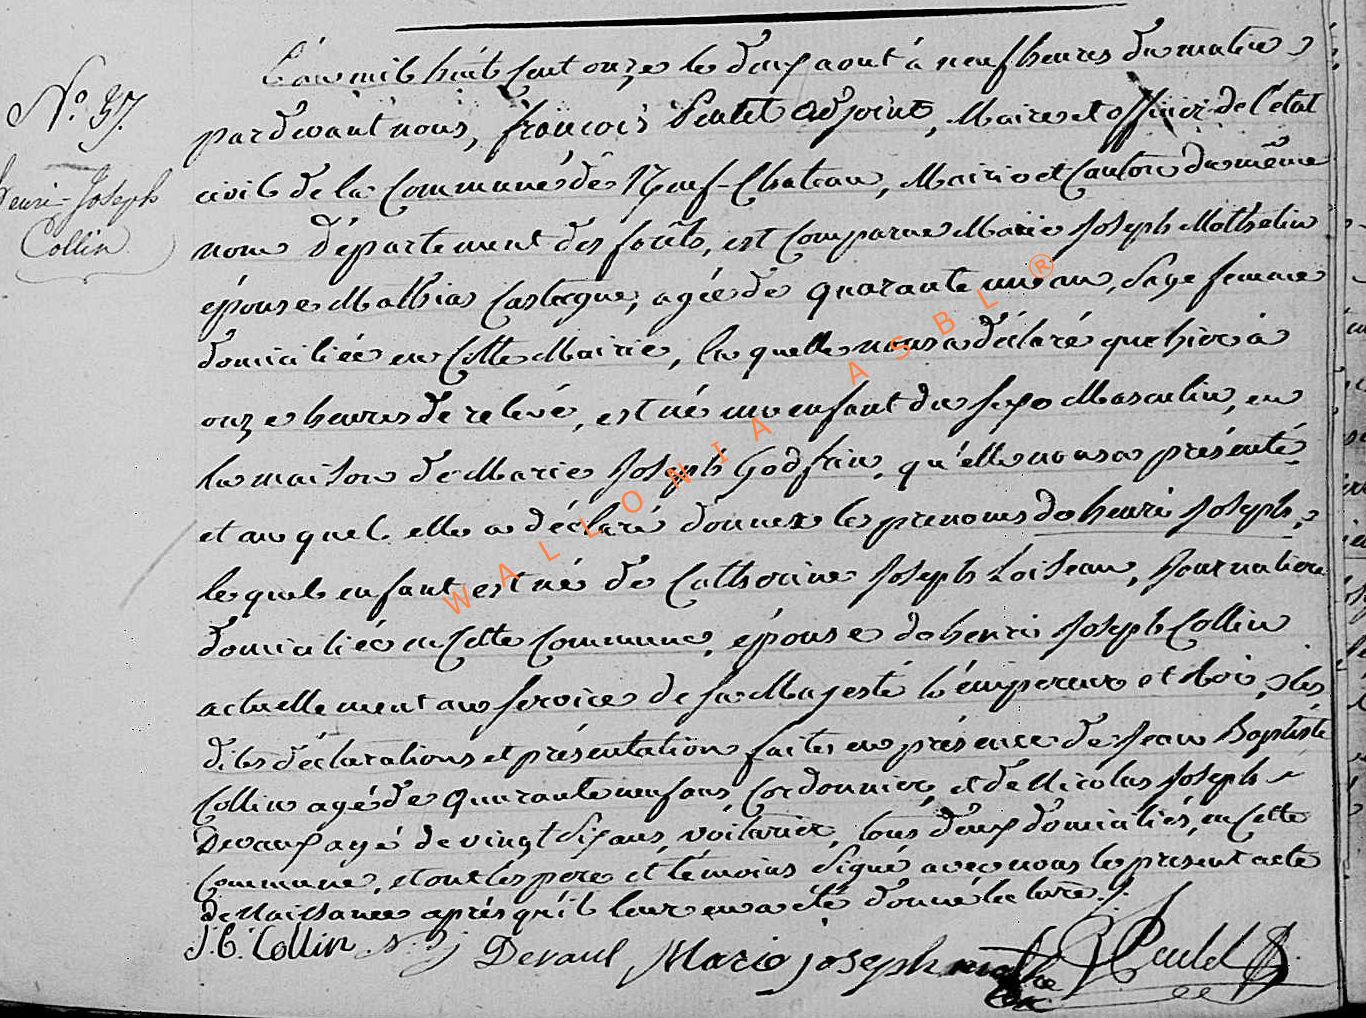 N.° 37.
Henri-Joseph
Collin
L'an mil huit cent onze le deux aout à neuf heures du matin
pardevant nous, françois adjoint, Maire et officier de l'etat
civil de la Commune de Neuf-Chateau, Mairie et Canton du même
nom département des forêts, est comparue Marie Joseph Mothelin
épouse Mathias Castagne, agée de quarante un an, Sage femme
domiciliée en Cette Mairie, la quelle nous a déclaré que hier à
onze heures de relevé, est né un enfant du sexe Masculin, en
la maison de Marie Joseph Godfrin, qu'elle nous a présenté
et au quel elle a déclaré donner les prenoms de henri Joseph,
le quel enfant est né de Catherine Joseph Loiseau, Journaliere
domiciliée en Cette Commune, épouse de henri Joseph Collin
actuellement au service de sa Majesté l'émpereur et Roi, les
dites déclarations et présentation faites en présence de Jean Baptiste
Collin agé de quarante neuf ans, Cordonnier, et de Nicolas Joseph
Devaux agé de vingt six ans, voiturier, tous deux domiciliés, en Cette
Commune, et ont les pere et témoins signé avec nous le present acte
de Naissance après qu'il leur en a été donné lecture.
J. B. Collin N. J Devaul Marie joseph
WALLONIA ASBL ®